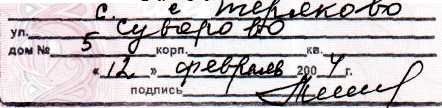 с. с. Теряково
ул. Суворово
дом № 5 корп. кв.
« 12 » февраль 2004 г.
подпись